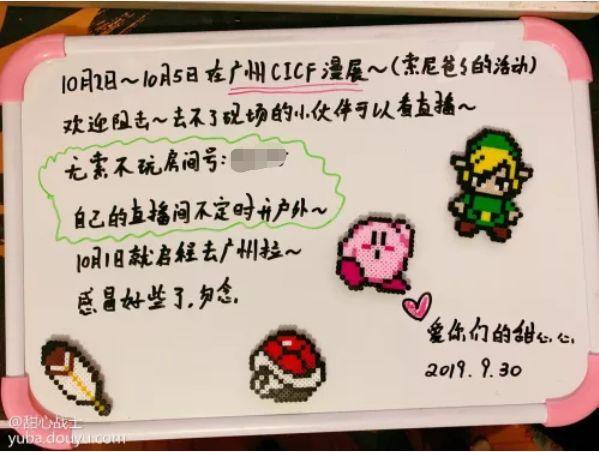 10月2日～10月5日在广州CICF漫展～(索尼爸爸的活动)
欢迎阻击～去不了现场的小伙伴可以看直播～
无索不玩房间号:
自己的直播间不定时开户外～
10月1日就启程去广州拉～
感冒好些了,勿念.
爱你们的甜心心.
2019.9.30
@甜心战士
yuba.douyu.com